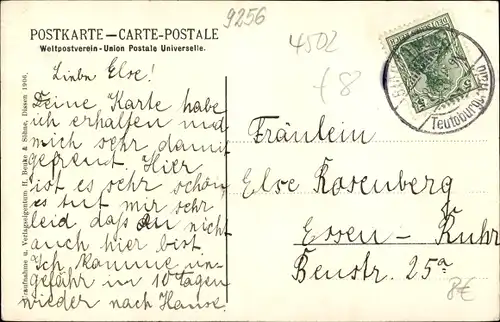 9256
POSTKARTE — CARTE-POSTALE
Weltpostverein - Union Postale Universelle.
4502
f 8
Liebe Else!
Deine Karte habe
ich erhalten und
mich sehr damit
gefreut. Hier
ist es sehr schön
es tut mir sehr
leid daß du nicht
auch hier bist
Ich komme un-
gefähr in 10 Tagen
wieder nach Hause.
u. Verlagseigentum H. Beuke & Söhne, Dissen 1906.
Teutoburg. Wald
Fräulein
Else Rosenberg
Essen - Ruhr
Beustr. 25a
8€